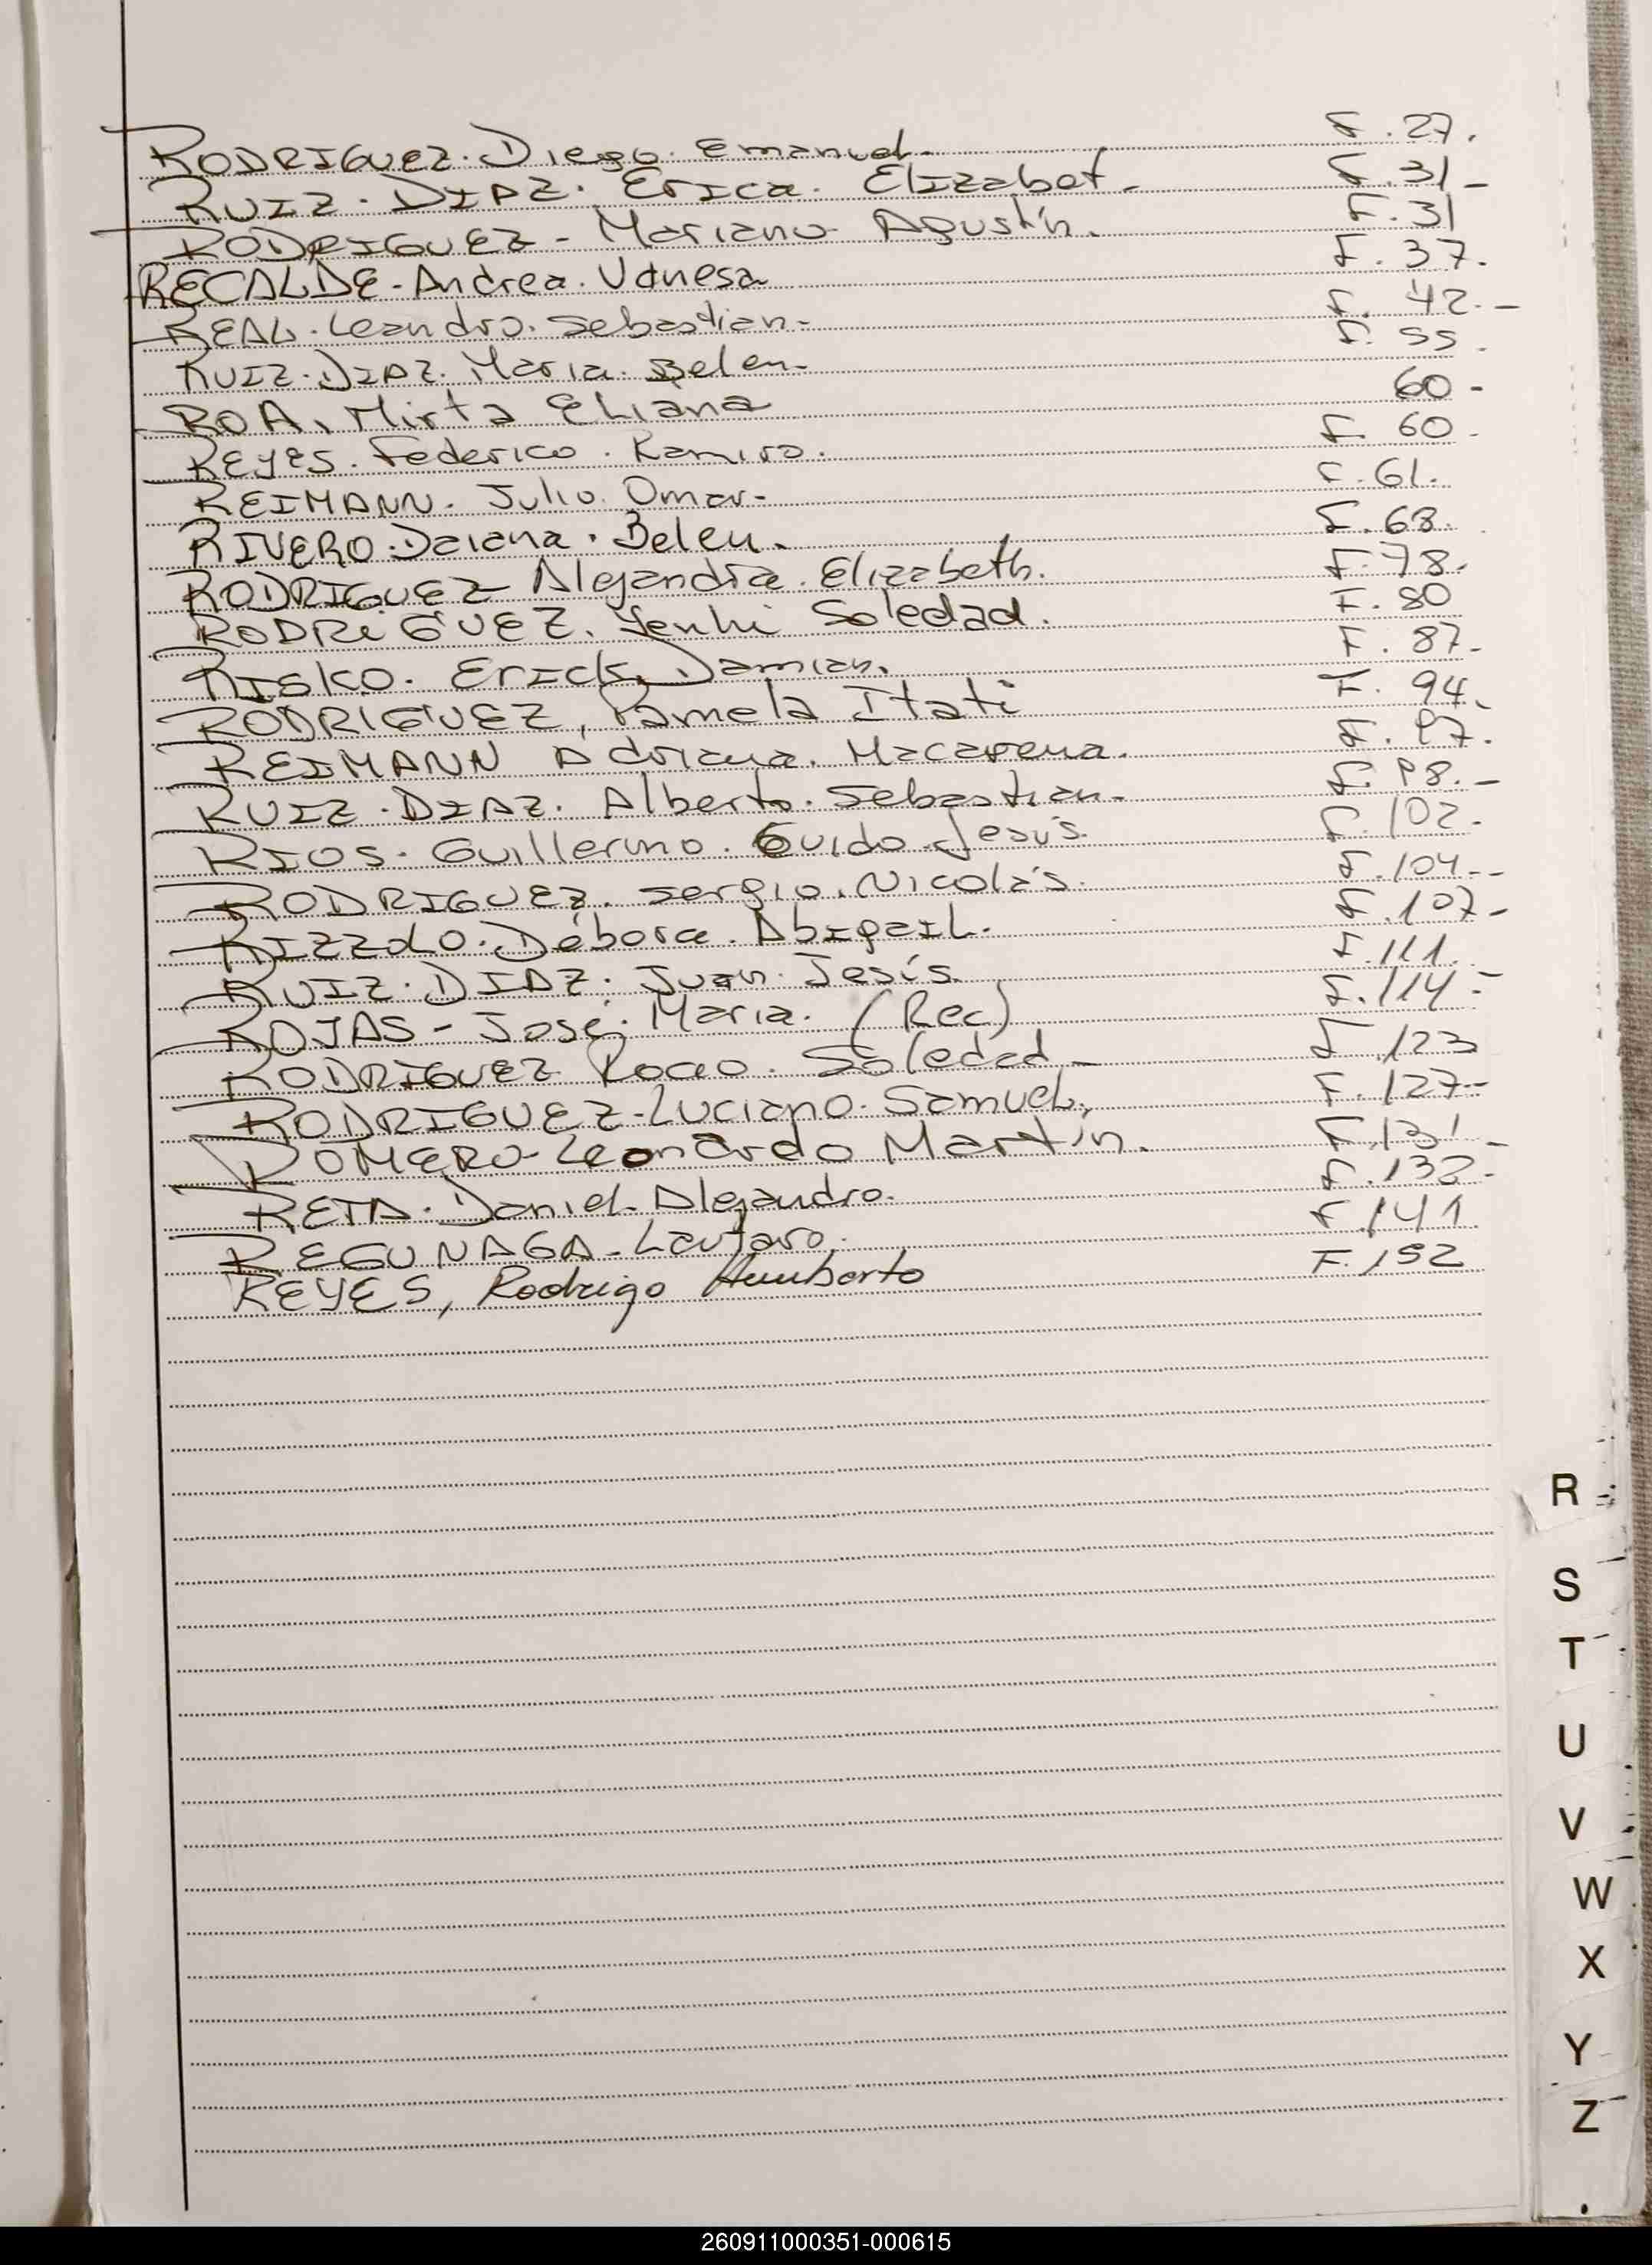 RODRIGUEZ. Diego. Emanuel. F. 27.
RUIZ. DIAZ. Erica. Elizabet. F. 31 -
RODRIGUEZ - Mariano Agustín. F. 31
RECALDE - Andrea. Vanesa F. 37.
REAL. Leandro. Sebastian - F. 42. -
RUIZ. DIAZ. Maria. Belen. F. 55.
ROA, Mirta Eliana 60 -
REYES. Federico. Ramiro. F. 60 -
REIMANN. Julio. Omar - F. 61.
RIVERO. Daiana. Belen. F. 68.
RODRIGUEZ Alejandra. Elizabeth. F. 78.
RODRiGUEZ, Soledad. F. 80
RISKO. Erick Damian. F. 87 -
RODRIGUEZ, Pamela Itati F. 94.
REIMANN Adriana. Macarena. F. 97.
RUIZ. DIAZ. Alberto. Sebastian - F. 98. -
RIOS. Guillermo. Guido. Jesús. F. 102 -
RODRIGUEZ. Sergio. Nicolás. F. 104 --
RIZZOLO. Débora. Abigail. F. 107 -
RUIZ. DIAZ. Juan. Jesís. F. 111.
ROJAS - José. Maria. (Rec) F. 114 -
RODRIGUEZ Rocio. Soledad - F. 123
RODRIGUEZ - Luciano. Samuel, F. 127 --
ROMERO - Leonardo Martín. F. 131 -
RETA. Daniel. Alejandro. F. 132 -
REGUNAGA - Lautaro. F. 141
REYES, Rodrigo Humberto F. 152
R
S
T
U
V
W
X
Y
Z
260911000351-000615